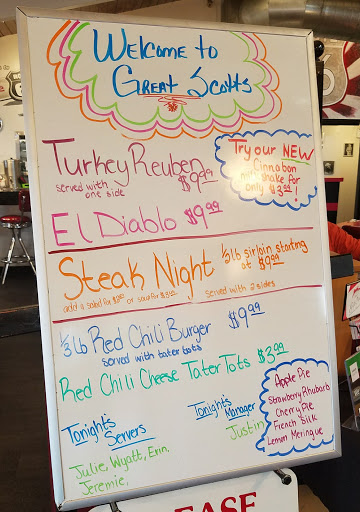 Welcome to
Great Scotts
Turkey Reuben
served with one side
$9.99
Try our NEW
Cinnabon
milkshake for
only $3.99!
El Diablo $9.99
Steak Night
1/2lb sirloin starting
at $9.99
served with 2 sides
1/3 lb Red Chili Burger $9.99
served with tater tots
Red Chili Cheese Tater Tots $3.99
Tonight's
Servers
Julie, Wyatt, Erin,
Jeremie,
Tonight's
Manager
Justin
Apple Pie
Strawberry Rhubarb
Cherry Pie
French Silk
Lemon Meringue